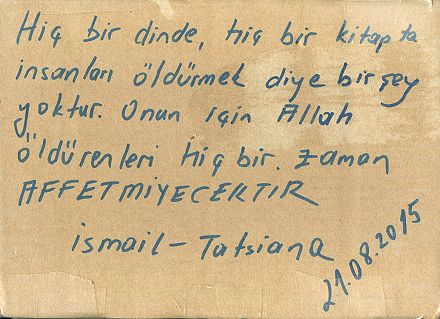 Hiç bir dinde, hiç bir kitapta
insanları öldürmek diye bir şey
yoktur. Onun için Allah
öldürenleri hiç bir. zaman
AFFETMİYECEKTİR
ismail - Tatsiana
21.08.2015